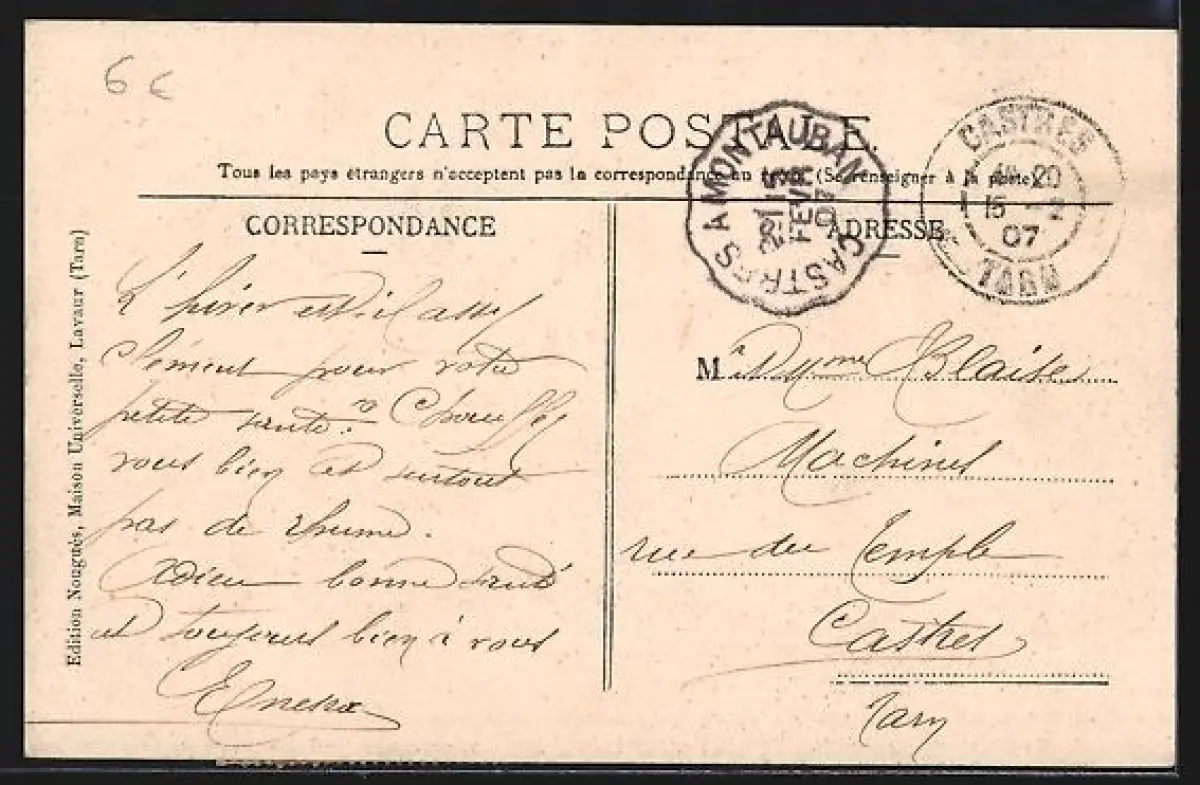 6 €
CARTE POSTALE.
Tous les pays étrangers n'acceptent pas la correspondance au recto. (Se renseigner à la poste)
CORRESPONDANCE
ADRESSE
CASTRES A MONTAUBAN
15
FEVR
07
CASTRES
CASTRES
20
15 - 2
07
TARN
Edition Nouguès, Maison Universelle, Lavaur (Tarn)
L'hiver est il asse
clément pour votre
petite santé? Chauffez
vous bien et surtout
pas de rhume.
Adieu bonne santé
et toujours bien à vous
M Blaise
Machines
rue du Temple
Castres
Tarn